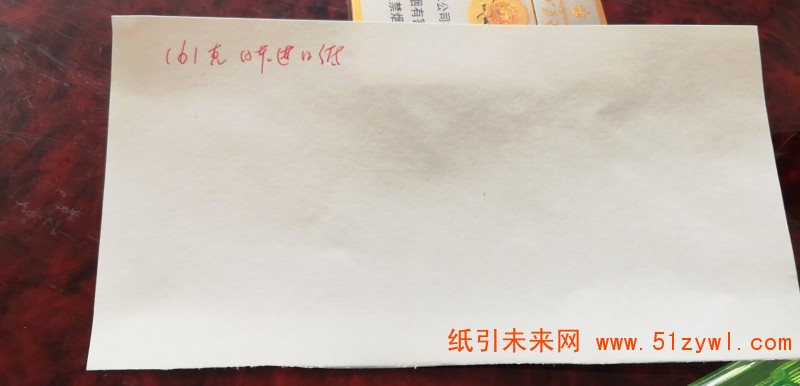 公司
161克 日本进口纸
纸引未来网 www.51zywl.com